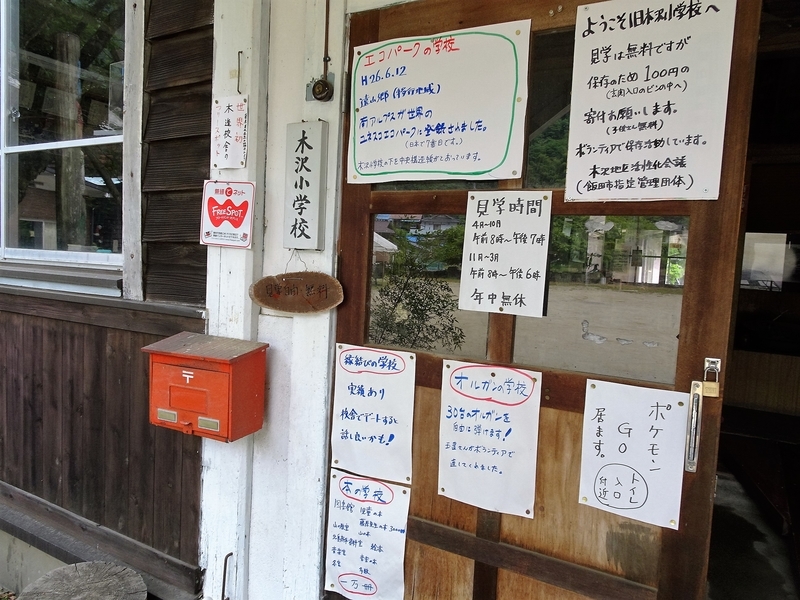 エコパークの学校
H26.6.12
遠山郷(特定地域)
南アルプスが世界の
ユネスコエコパークに登録されました。
(日本で7番目です。)
木沢小学校の下を中央構造線がとおっています。
ようこそ旧木沢小学校へ
見学は無料ですが
保存のため100円の
(玄関入口のビンの中へ)
寄付お願いします。
(子供さん無料)
ボランティアで保存活動しています。
木沢地区活性化会議
(飯田市指定管理団体)
世界初
木造校舎の
無線でネット
FREESPOT
木沢小学校
見学自由・無料
見学時間
4月〜10月
午前8時〜午後7時
11月〜3月
午前8時〜午後6時
年中無休
縁結びの学校
実績あり
校舎でデートすると
話し良いかも!
オルガンの学校
30台のオルガンを
自由に弾けます!
ボランティアで
直してくれました。
ポケモン
GO
居ます。
トイレ
入口
付近
本の学校
図書館
絵本
一万冊
〒